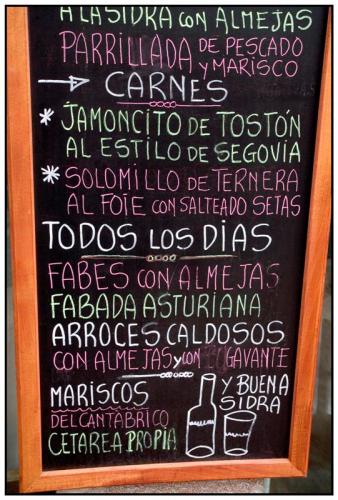 A LA SIDRA CON ALMEJAS
PARRILLADA DE PESCADO
Y MARISCO
CARNES
* JAMONCITO DE TOSTÓN
AL ESTILO DE SEGOVIA
* SOLOMILLO DE TERNERA
AL FOIE CON SALTEADO SETAS
TODOS LOS DIAS
FABES CON ALMEJAS
FABADA ASTURIANA
ARROCES CALDOSOS
CON ALMEJAS Y CON BOGAVANTE
MARISCOS
DEL CANTÁBRICO
CETAREA PROPIA
Y BUENA
SIDRA